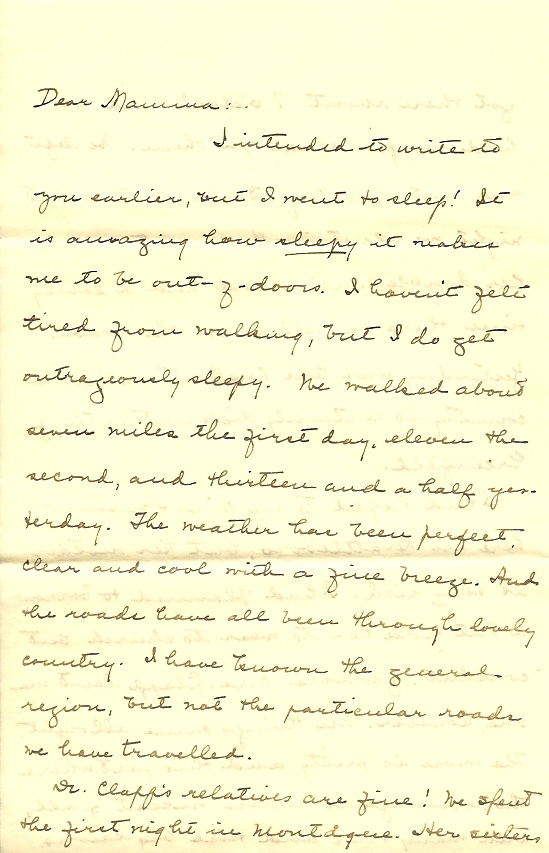 Dear Mamma:.
I intended to write to
you earlier, but I went to sleep! It
is amazing how sleepy it makes
me to be out-of-doors. I haven't felt
tired from walking, but I do get
outrageously sleepy. We walked about
seven miles the first day, eleven the
second, and thirteen and a half yes-
terday. The weather has been perfect,
clear and cool with a fine breeze. And
the roads have all been through lovely
country. I have known the general
region, but not the particular roads
we have travelled.
Dr. Clapp's relatives are fine! We spent
the first night in Montague. Her sisters